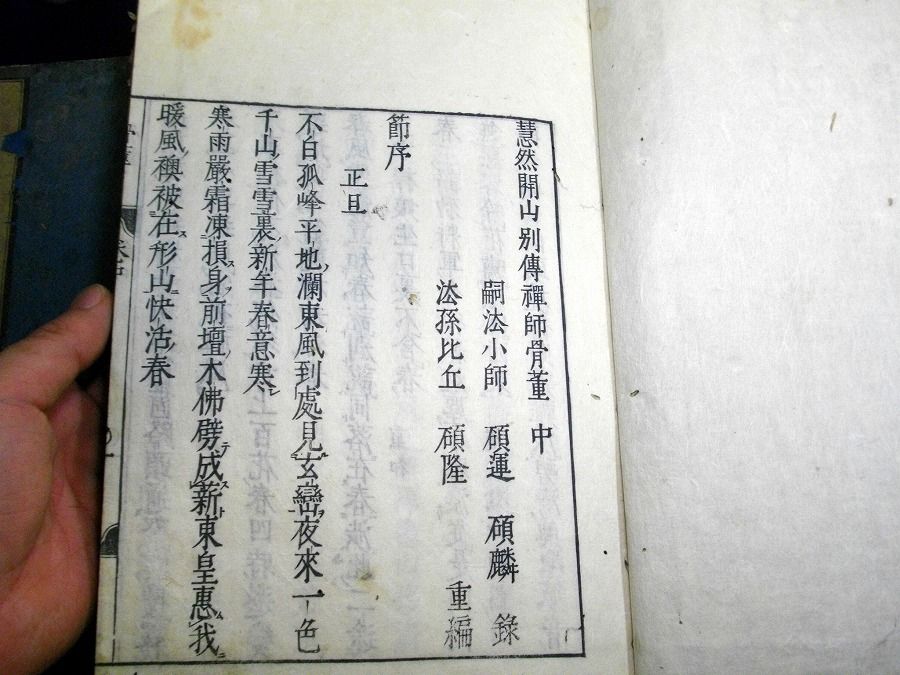 慧然開山別傳禪師骨董 中
嗣法小師 碩運 碩麟 錄
法孫比丘 碩隆 重編
節序
正旦
不白孤峰平地瀾東風到處見玄巒夜來一色
千山雪雪裏新年春意寒
寒雨嚴霜凍損身前壇木佛劈成薪東皇惠我
暖風襖被在形山快活春